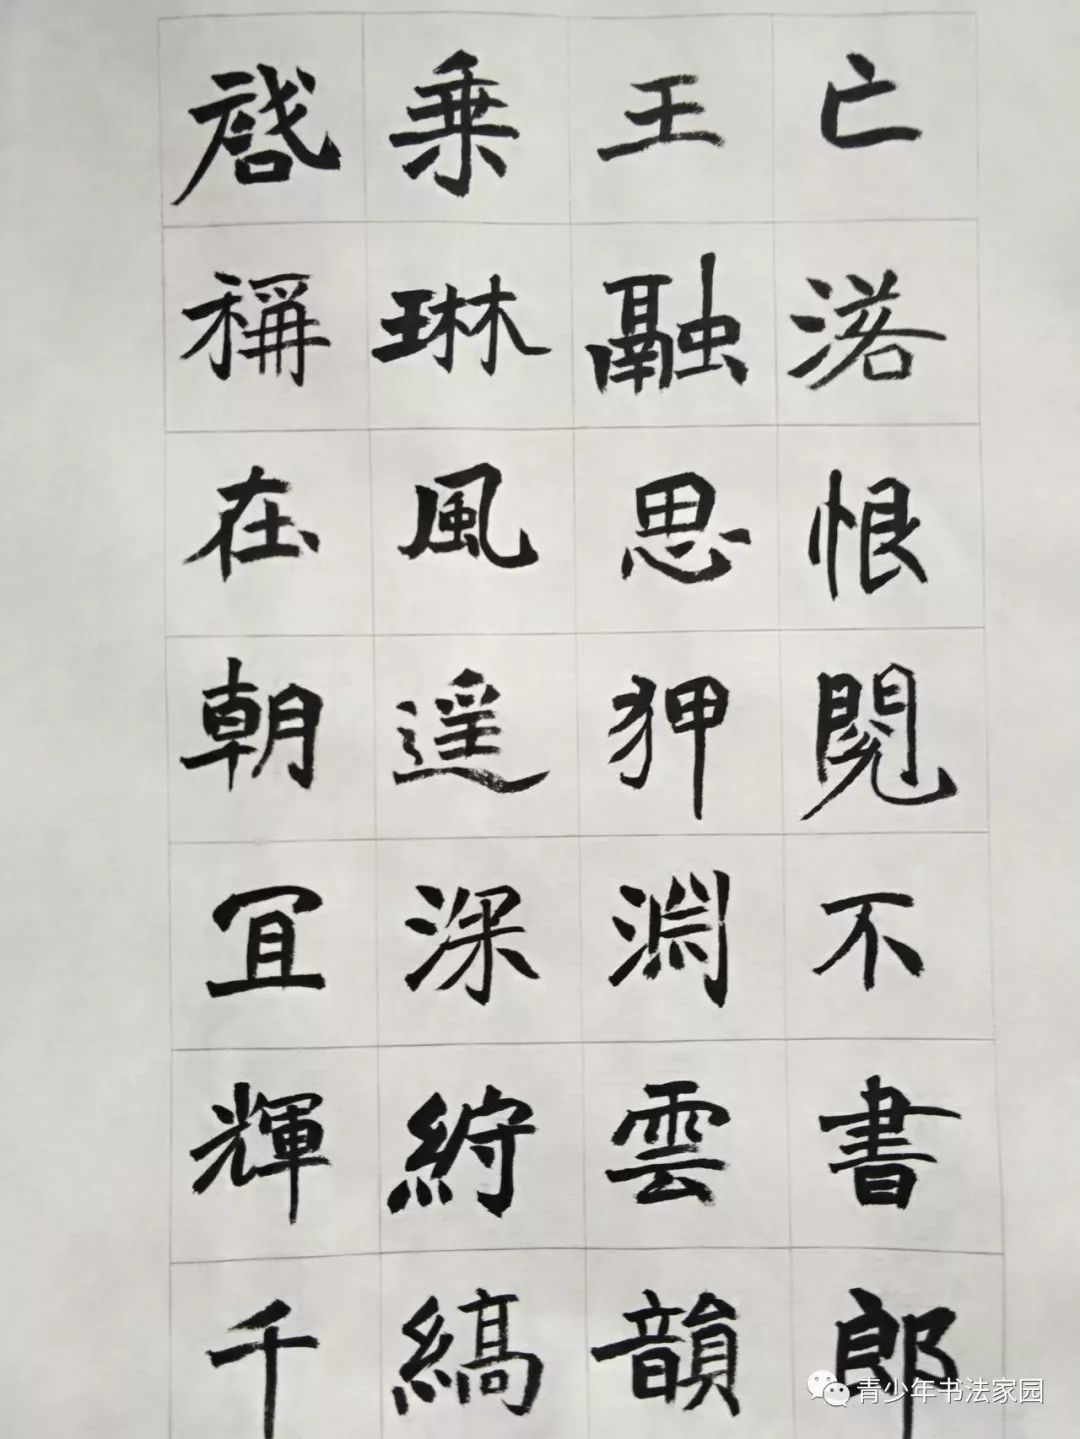 亡落恨閱不書郎
王融思狎淵雲韻
乗琳風遥深紵縞
啓稱在朝冝輝千
青少年书法家园